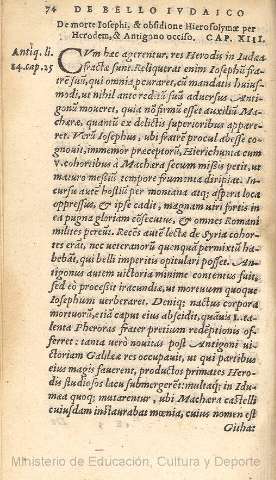 74 DE BELLO IVDAICO
De morte Iosephi: & obsidione Hierosolymæ per
Herodem, & Antigono occiso. CAP. XIII.
Antiq. li.
14. cap. 25
CVm hæc agerentur, res Herodis in Iudæa
fractæ sunt. Reliquerat enim Iosephũ fra-
trẽ suũ, qui omnia procuraret, cũ mandatis huius-
modi, ut nihil ante reditũ suũ aduersus Antigo-
nũ moueret, quia nõ firmũ esset auxiliũ Mache-
ra, quantũ ex delictis superioribus appare-
ret. Verũ Iosephus, ubi fratrẽ procul abesse co-
gnouit, immemor præceptorũ, Hierichunta cum
v. cohoribus à Machæra secum missis petit, ut
maturo messiũ tempore frumenta diripiat. In-
cursu autẽ hostiũ per montana atq; aspera loca
oppressus, & ipse cadit, magnam uiri fortis in
ea pugna gloriam cõsecutus, & omnes Romani
milites pereũt. Recẽs autẽ lectæ de Syria cohor-
tes erãt, nec ueteranorũ quenquã permixtũ ha-
bebãt, qui belli imperitis opitulari posset. An-
tigonus autem uictoria minime contentus fuit,
sed eò processit iracundiæ, ut mortuum quoque
Iosephum uerberaret. Deniq; nactus corpora
mortuorũ, etiã caput eius abscidit, quãuis L. ta-
lenta Pheroras frater pretium redẽptionis of-
ferret: tanta verò nouitas post Antigoni vi-
ctoriam Galileæ res occupauit, ut qui partibus
eius magis fauerent, productos primates Hero-
dis studiosos lacu submergerẽt: multaq; in Idu-
mæa quoq; mutarentur, ubi Machæra castelli
cuiusdam instaurabat mœnia, cuius nomen est
Githa:
Ministerio de Educación, Cultura y Deporte